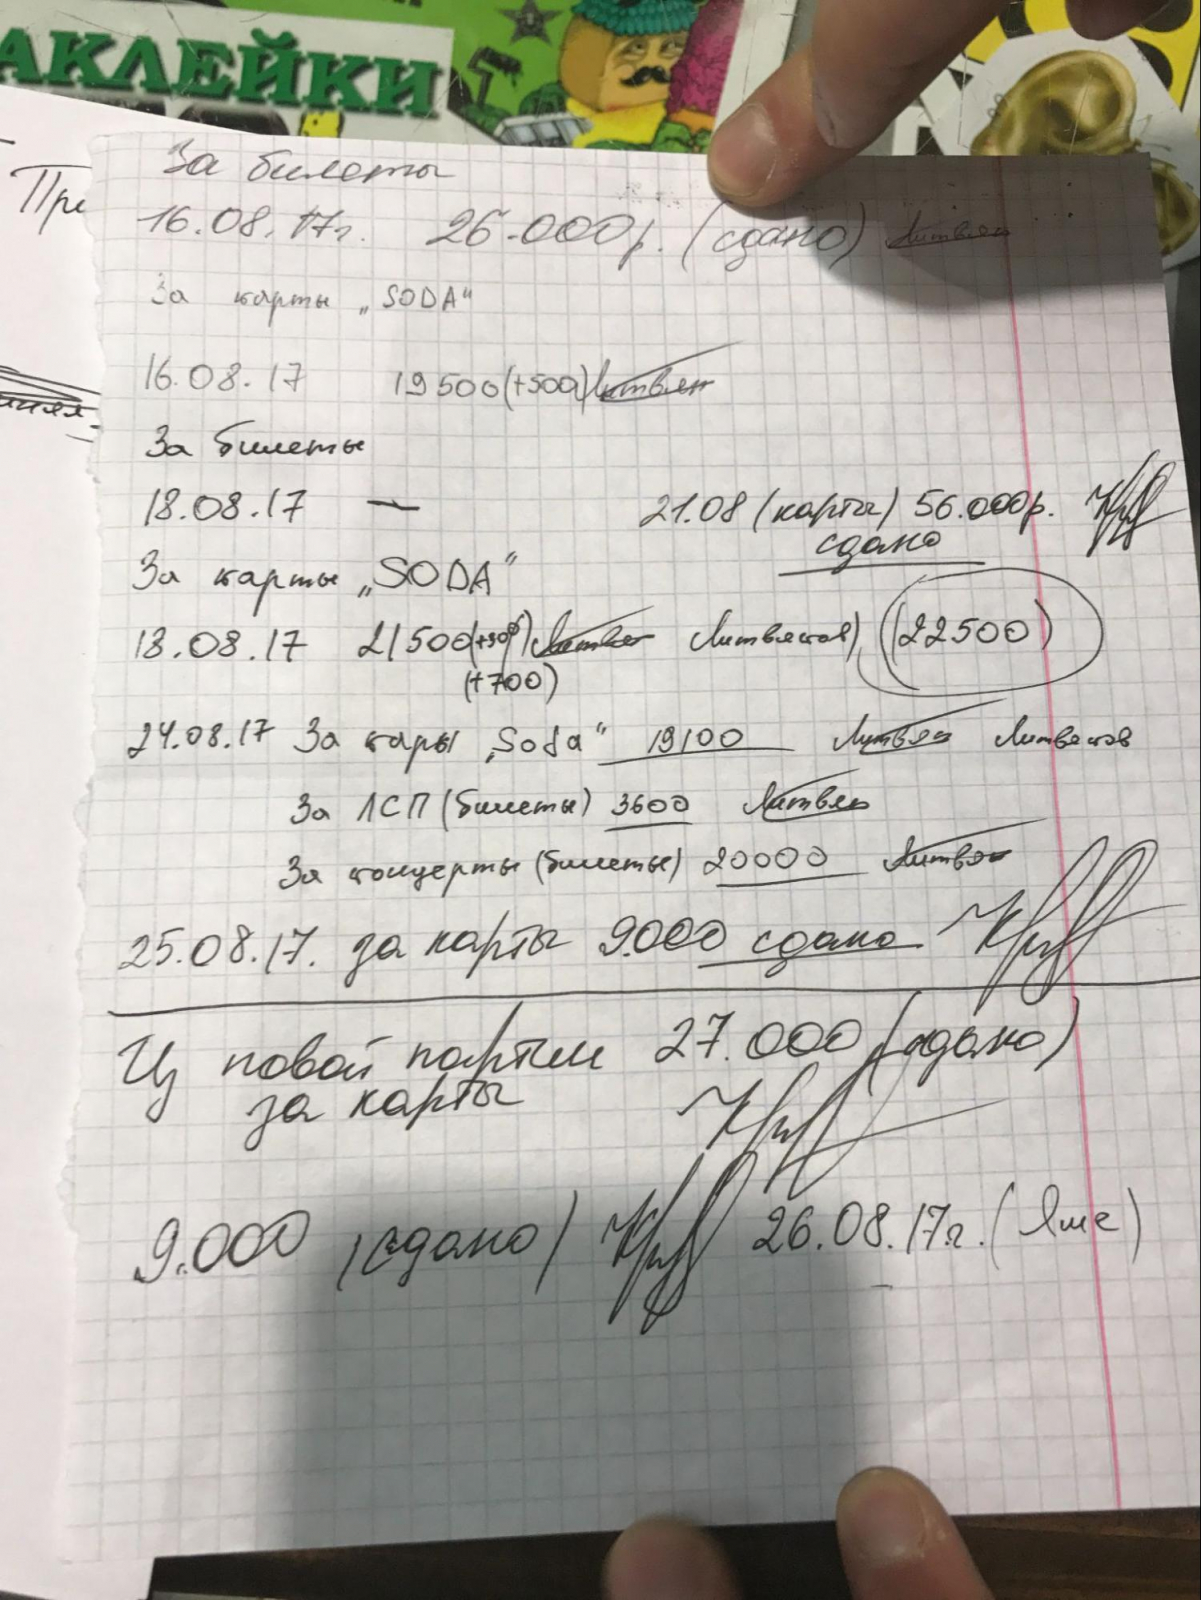 АКЛЕЙКИ
Пре
За билеты
16.08.17г. 26.000р. (сдано) Литвяк
За карты „SODA"
16.08.17 19500(+500) Литвяк
За билеты
18.08.17 —
21.08 (карты) 56.000р.
сдано
За карты „SODA"
18.08.17 21500
(+700)
(22500)
24.08.17 За кары „Soda" 19100
За ЛСП (билеты) 3600 Литвяк
За концерты (билеты) 20000 Литвяк
25.08.17. за карты 9.000 сдано
новой партии 27.000 (сдано)
за карты
9.000 (сдано) 26.08.17г. (Яше)